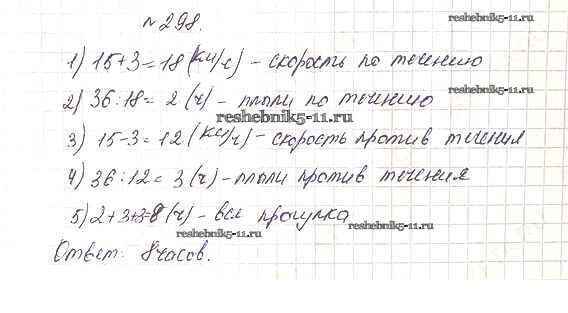 №298. reshebnik5-11.ru
1) 15+3=18 (км/ч) – скорость по течению
2) 36:18= 2 (ч) – плыли по течению
reshebnik5-11.ru
3) 15-3=12 (км/ч) – скорость против течения
4) 36:12= 3 (ч) – плыли против течения
5) 2+3+3=8 (ч) – вся прогулка
reshebnik5-11.ru reshebnik5-11.ru
Ответ: 8 часов.